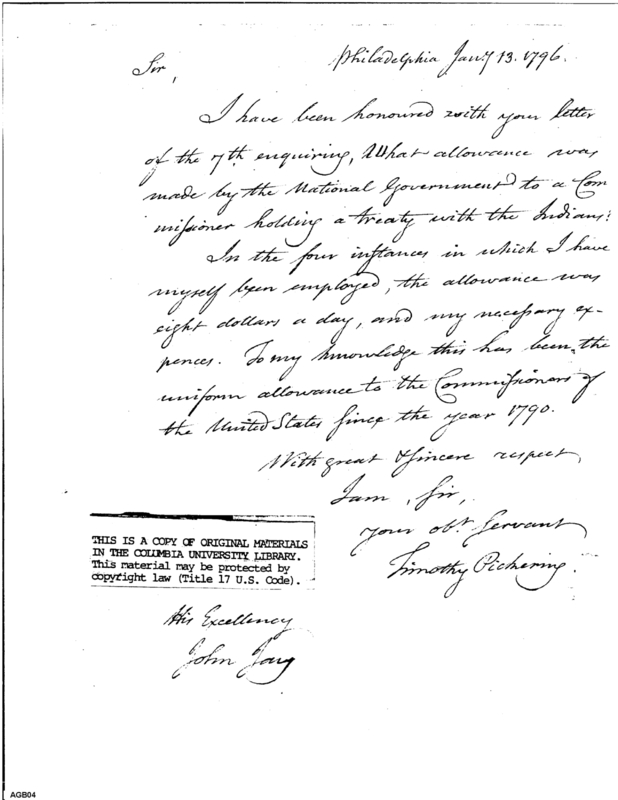 Philadelphia Jany 13. 1796.
Sir,
I have been honoured with your letter
of the 7th enquiring, What allowance was
made by the National Government to a Com
missioner holding a treaty with the Indians?
In the four instances in which I have
myself been employed, the allowance was
eight dollars a day, and my necessary ex-
pences. To my knowledge this has been the
uniform allowance to the Commissioners of
the United States since the year 1790.
With great & sincere respect,
I am, Sir,
your obt. servant
Timothy Pickering.
THIS IS A COPY OF ORIGINAL MATERIALS
IN THE COLUMBIA UNIVERSITY LIBRARY.
This material may be protected by
copyright law (Title 17 U.S. Code).
His Excellency
John Jay
AGB04